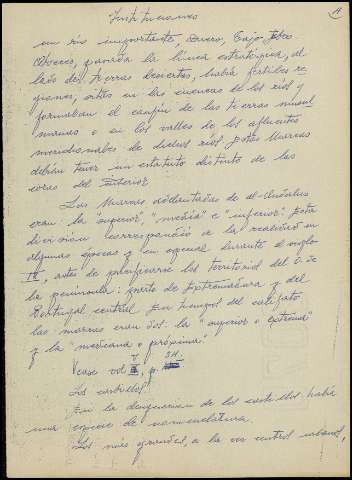 Instituciones
A
un río importante, Duero, Tajo, Ebro.
Otras veces, quando la línea estratégica, al
lado de tierras desiertas, había fértiles re-
giones, sitas en las cuencas de los ríos y
formaban el confín de las tierras musul
manas o en los valles de los afluentes
meridionales de dichos ríos. Estas Marcas
debían tener un estatuto distinto de las
coras del Interior
Las Marcas adelantadas de al-Andalus
eran: la "superior", "media" e "inferior". Esta
división, correspondió a la realidad en
algunas épocas y en especial durante el siglo
IX, antes de pacificarse los territorios del O. de
la península: parte de Extremadura y del
Portugal central. En tiempos del califato
las marcas eran dos: la "superior o extrema"
y la "mediana o próxima".
Vease vol V, p.
Los castillos.
En la designación de los castillos había
una especie de nomenclatura.
Los más grandes, a la vez central urbano,